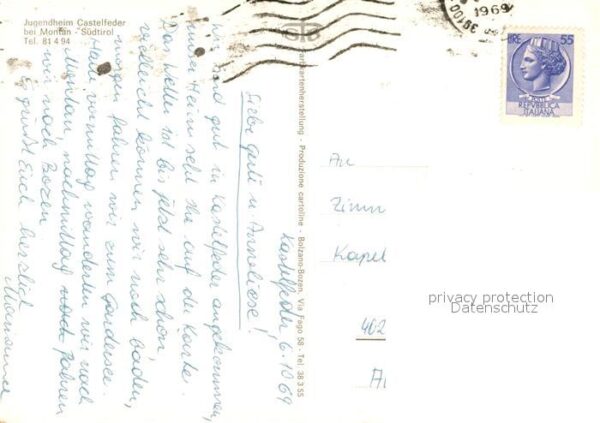 Jugendheim Castelfeder
bei Montan - Südtirol
Tel. 81 4 94
Kastelfeder, 6.10.69
Liebe Gusti u. Anneliese!
wir sind gut in Kastelfeder angekommen,
unser Heim seht Ihr auf der Karte.
Das Wetter ist bis jetzt sehr schön
vielleicht können wir noch baden,
morgen fahren wir zum Gardasee.
Heute vormittag wandern wir nach
Montan, nachmittag noch fahren
wir nach Bozen.
Es grüßt Euch herzlich
Marianne
kartenherstellung - Produzione cartoline - Bolzano-Bozen, Via Fago 58 - Tel. 38 3 55
1969
39100
LIRE 55
POSTE
REPVBBLICA
ITALIANA
An
Zimm
Kapel
402
privacy protection
Datenschutz